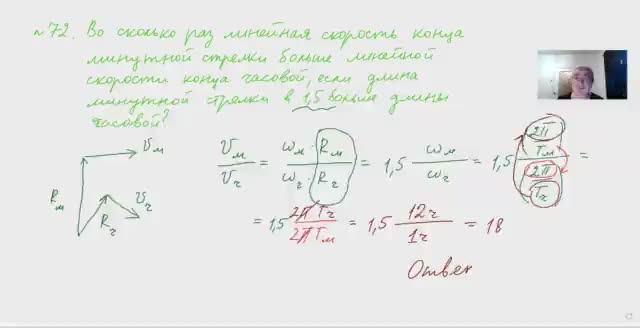 №72. Во сколько раз линейная скорость конца
минутной стрелки больше линейной
скорости конца часовой, если длина
минутной стрелки в 1,5 больше длины
часовой?
Vм
Rм
Rч
Vч
Vм/Vч = ωм·Rм/ωч·Rч = 1,5 ωм/ωч = 1,5 2π/Tм/2π/Tч =
= 1,5 2πTч/2πTм = 1,5 12ч/1ч = 18
Ответ